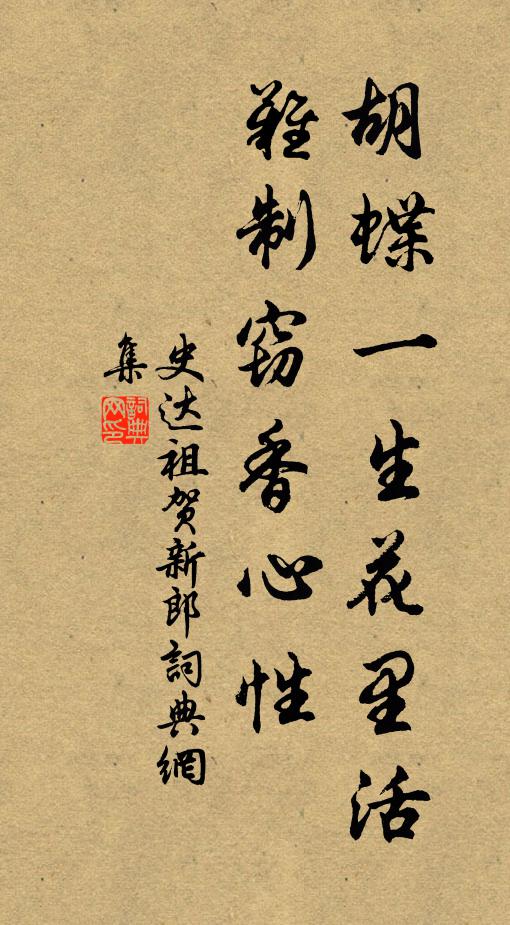 胡蝶一生花里活
難制窈香心性
史达祖贺新郎詞典網
集
詞典
网印